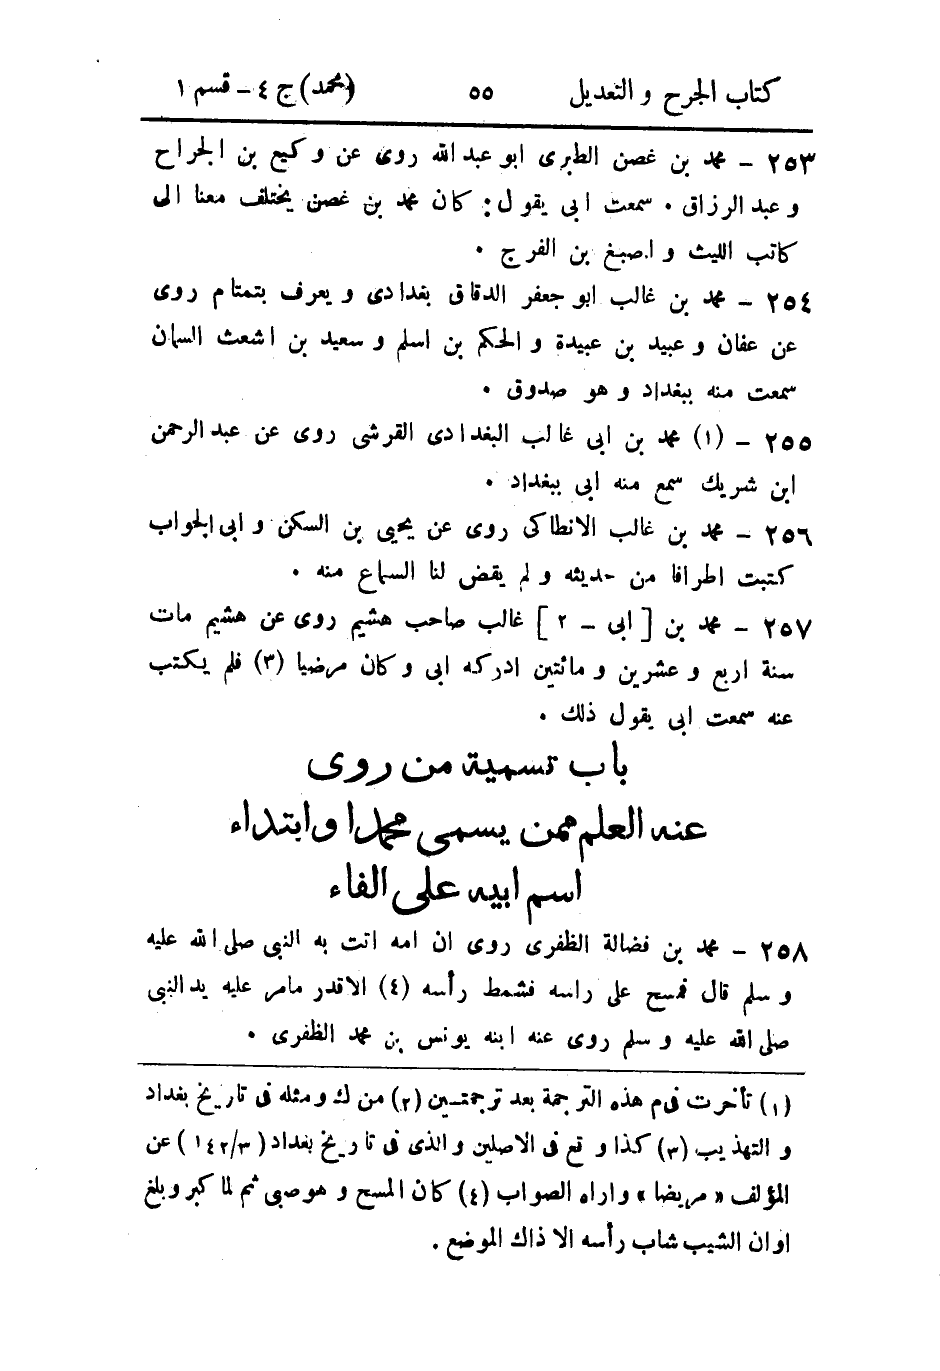 كتاب الجرح و التعديل ٥٥ (محمد) ج ٤ – قسم ١
٢٥٣ – محمد بن غصن الطبرى ابو عبد الله روى عن وكيع بن الجراح
وعبد الرزاق . سمعت ابى يقول: كان محمد بن غصن يختلف معنا الى
كاتب الليث و اصبغ بن الفرج .
٢٥٤ – محمد بن غالب ابو جعفر الدقاق بغدادى و يعرف بتمتام روى
عن عفان و عبيد بن عبيدة و الحكم بن اسلم و سعيد بن اشعث السمان
سمعت منه ببغداد و هو صدوق .
٢٥٥ – (١) محمد بن ابى غالب البغدادى القرشى روى عن عبد الرحمن
ابن شريك سمع منه ابى ببغداد .
٢٥٦ – محمد بن غالب الانطاكى روى عن يحيى بن السكن و ابى الجواب
كتبت اطرافا من حديثه و لم يقض لنا السماع منه .
٢٥٧ – محمد بن [ ابى – ٢ ] غالب صاحب هشيم روى عن هشيم مات
سنة اربع و عشرين و مائتين ادركه ابى و كان مرضيا (٣) فلم يكتب
عنه سمعت ابى يقول ذلك .
باب تسمية من روى
عنه العلم ممن يسمى محمدا و ابتداء
اسم ابيه على الفاء
٢٥٨ – محمد بن فضالة الظفرى روى ان امه اتت به النبى صلى الله عليه
و سلم قال فمسح على راسه فشمط رأسه (٤) الا قدر مامر عليه يد النبى
صلى الله عليه و سلم روى عنه ابنه يونس بن محمد الظفرى .
(١) تأخرت فى م هذه الترجمة بعد ترجمتين (٢) من ك و مثله فى تاريخ بغداد
و التهذيب (٣) كذا وقع فى الاصلين و الذى فى تاريخ بغداد (١٤٢/٣) عن
المؤلف « مريضا » و اراه الصواب (٤) كان المسح و هو صبى ثم لما كبر و بلغ
اوان الشيب شاب رأسه الا ذاك الموضع .